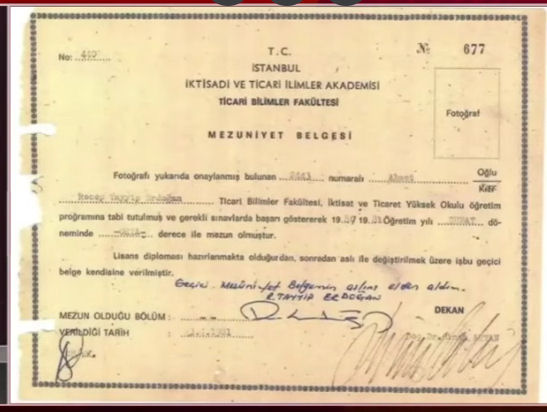 No: 449
T. C.
İSTANBUL
İKTİSADİ VE TİCARİ İLİMLER AKADEMİSİ
TİCARİ BİLİMLER FAKÜLTESİ
№ 677
Fotoğraf
MEZUNİYET BELGESİ
Fotoğrafı yukarıda onaylanmış bulunan 2443 numaralı Ahmet Oğlu
Kızı
Recep Tayyip Erdoğan Ticari Bilimler Fakültesi, İktisat ve Ticaret Yüksek Okulu öğretim
programına tabi tutulmuş ve gerekli sınavlarda başarı göstererek 19 19 Öğretim yılı ŞUBAT dö-
neminde -ORTA- derece ile mezun olmuştur.
Lisans diploması hazırlanmakta olduğundan, sonradan aslı ile değiştirilmek üzere işbu geçici
belge kendisine verilmiştir.
Geçici Mezuniyet Belgemin aslını elden aldım.
R.TAYYİP ERDOĞAN
MEZUN OLDUĞU BÖLÜM : - -
VERİLDİĞİ TARİH : 1981
DEKAN